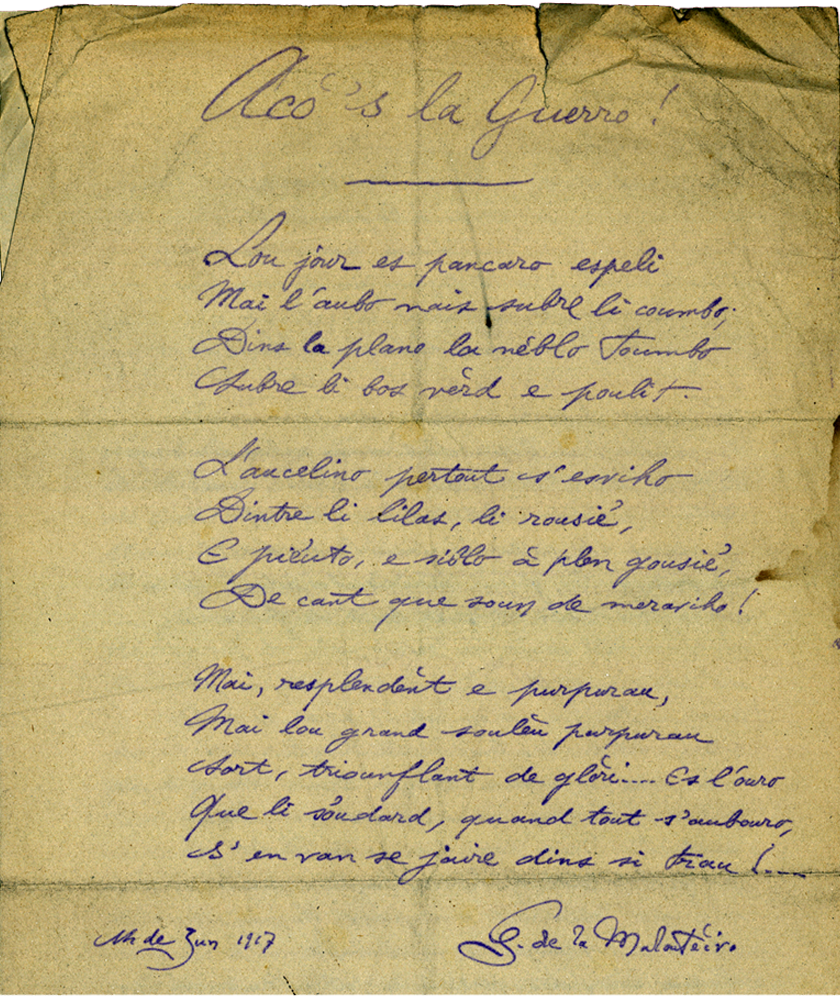 Acò 's la Guerro !
Lou jour es pancaro espeli
Mai l'aubo nais subre li coumbo;
Dins la plano la nèblo toumbo
Subre li bos vèrd e poulit.
L'aucelino pertout s'esviho
Dintre li lilas, li rousié,
E piéuto, e siblo à plen gousié,
De cant que soun de meraviho !
Mai, resplendènt e purpurau,
Mai lou grand soulèu purpurau
Sort, triounflant de glòri.... Es l'ouro
Que li sóudard, quand tout s'aubouro,
S'en van se jaire dins si trau !...
de Jun 1917
G. de la Malautéiro